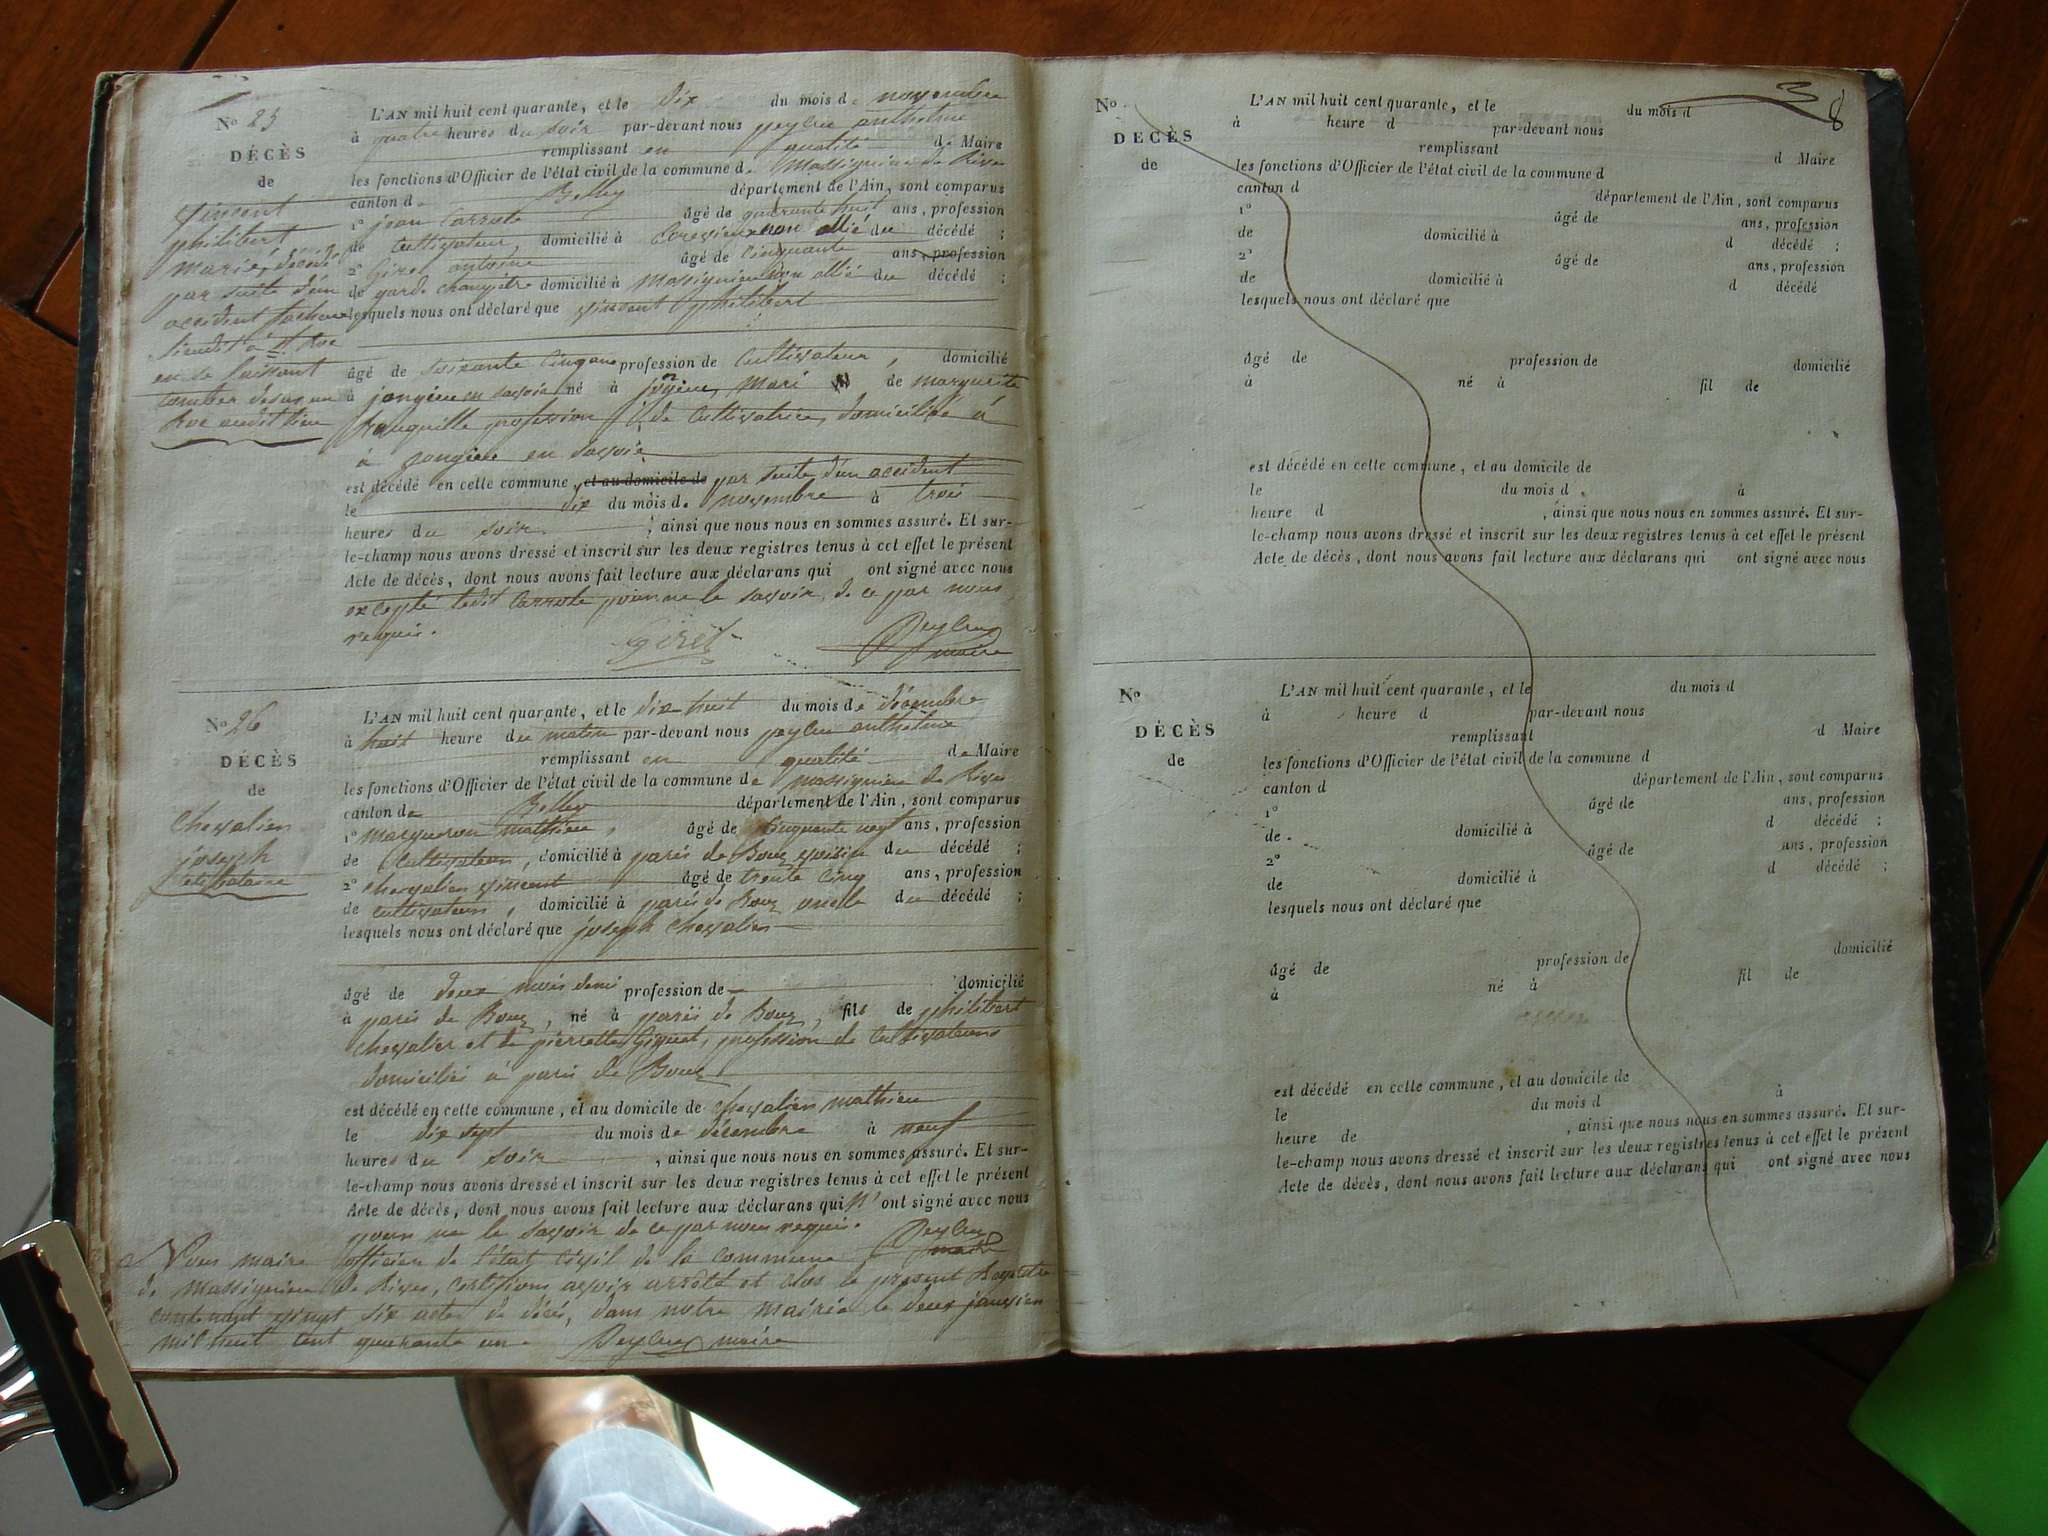 No 25
DÉCÈS
de
Vincent
philibert
marié, décédé
par suite d'un
accident
lieudit à
en se laissant
tomber de sur un
audit lieu
L'AN mil huit cent quarante, et le Dix du mois de novembre
à quatre heures du soir par-devant nous peyleu anthelme
remplissant en qualité de Maire
les fonctions d'Officier de l'état civil de la commune de Massignieu de Rives
canton de Belley département de l'Ain, sont comparus
1º jean Carrote âgé de quarante huit ans, profession
de Cultivateur, domicilié à non allié du décédé ;
2º Giret antoine âgé de Cinquante ans, profession
de garde champêtre domicilié à Massignieu non allié du décédé ;
lesquels nous ont déclaré que Vincent philibert
âgé de soixante Cinq ans profession de Cultivateur, domicilié
à jongieu en savoie né à jongieu, Mari de marguerite
profession de Cultivatrice, domiciliée à
à jongieu en savoie
est décédé en cette commune, et au domicile de par suite d'un accident
le dix du mois de novembre à trois
heures du soir, ainsi que nous nous en sommes assuré. Et sur-
le-champ nous avons dressé et inscrit sur les deux registres tenus à cet effet le présent
Acte de décès, dont nous avons fait lecture aux déclarans qui ont signé avec nous
excepté ledit Carrote pour ne le savoir, de ce par nous
requis.
Giret Peyleu
maire
No 26
DÉCÈS
de
Chevalier
joseph
célibataire
L'AN mil huit cent quarante, et le dix huit du mois de décembre
à huit heure du matin par-devant nous peyleu anthelme
remplissant en qualité de Maire
les fonctions d'Officier de l'état civil de la commune de Massignieu de Rives
canton de Belley département de l'Ain, sont comparus
1º marqueron mathieu, âgé de Cinquante neuf ans, profession
de Cultivateur, domicilié à paris de Bouz voisin du décédé ;
2º Chevalier Vincent âgé de trente Cinq ans, profession
de cultivateur, domicilié à paris de Bouz oncle du décédé ;
lesquels nous ont déclaré que joseph Chevalier
âgé de deux mois demi profession de domicilié
à paris de Bouz, né à paris de Bouz, fils de philibert
Chevalier et de pierrette profession de Cultivateurs
domiciliés à paris de Bouz
est décédé en cette commune, et au domicile de Chevalier mathieu
le dix sept du mois de décembre à neuf
heures du soir, ainsi que nous nous en sommes assuré. Et sur-
le-champ nous avons dressé et inscrit sur les deux registres tenus à cet effet le présent
Acte de décès, dont nous avons fait lecture aux déclarans qui n'ont signé avec nous
pour ne le savoir de ce par nous requis. Peyleu
maire
Nous maire officier de l'état Civil de la commune
de Massignieu de Rives, Certifions avoir arrêté et clos le présent Registre
contenant vingt six actes de décès, dans notre mairie le deux janvier
mil huit cent quarante un Peyleu maire
8
No
DÉCÈS
de
L'AN mil huit cent quarante, et le du mois d
à heure d par-devant nous
remplissant d Maire
les fonctions d'Officier de l'état civil de la commune d
canton d département de l'Ain, sont comparus
1º âgé de ans, profession
de domicilié à d décédé ;
2º âgé de ans, profession
de domicilié à d décédé
lesquels nous ont déclaré que
âgé de profession de domicilié
à né à fil de
est décédé en cette commune, et au domicile de
le du mois d à
heure d , ainsi que nous nous en sommes assuré. Et sur-
le-champ nous avons dressé et inscrit sur les deux registres tenus à cet effet le présent
Acte de décès, dont nous avons fait lecture aux déclarans qui ont signé avec nous
No
DÉCÈS
de
L'AN mil huit cent quarante, et le du mois d
à heure d par-devant nous
remplissant d Maire
les fonctions d'Officier de l'état civil de la commune d
canton d département de l'Ain, sont comparus
1º âgé de ans, profession
de domicilié à d décédé ;
2º âgé de ans, profession
de domicilié à d décédé ;
lesquels nous ont déclaré que
âgé de profession de domicilié
à né à fil de
est décédé en cette commune, et au domicile de
le du mois d à
heure de , ainsi que nous nous en sommes assuré. Et sur-
le-champ nous avons dressé et inscrit sur les deux registres tenus à cet effet le présent
Acte de décès, dont nous avons fait lecture aux déclarans qui ont signé avec nous